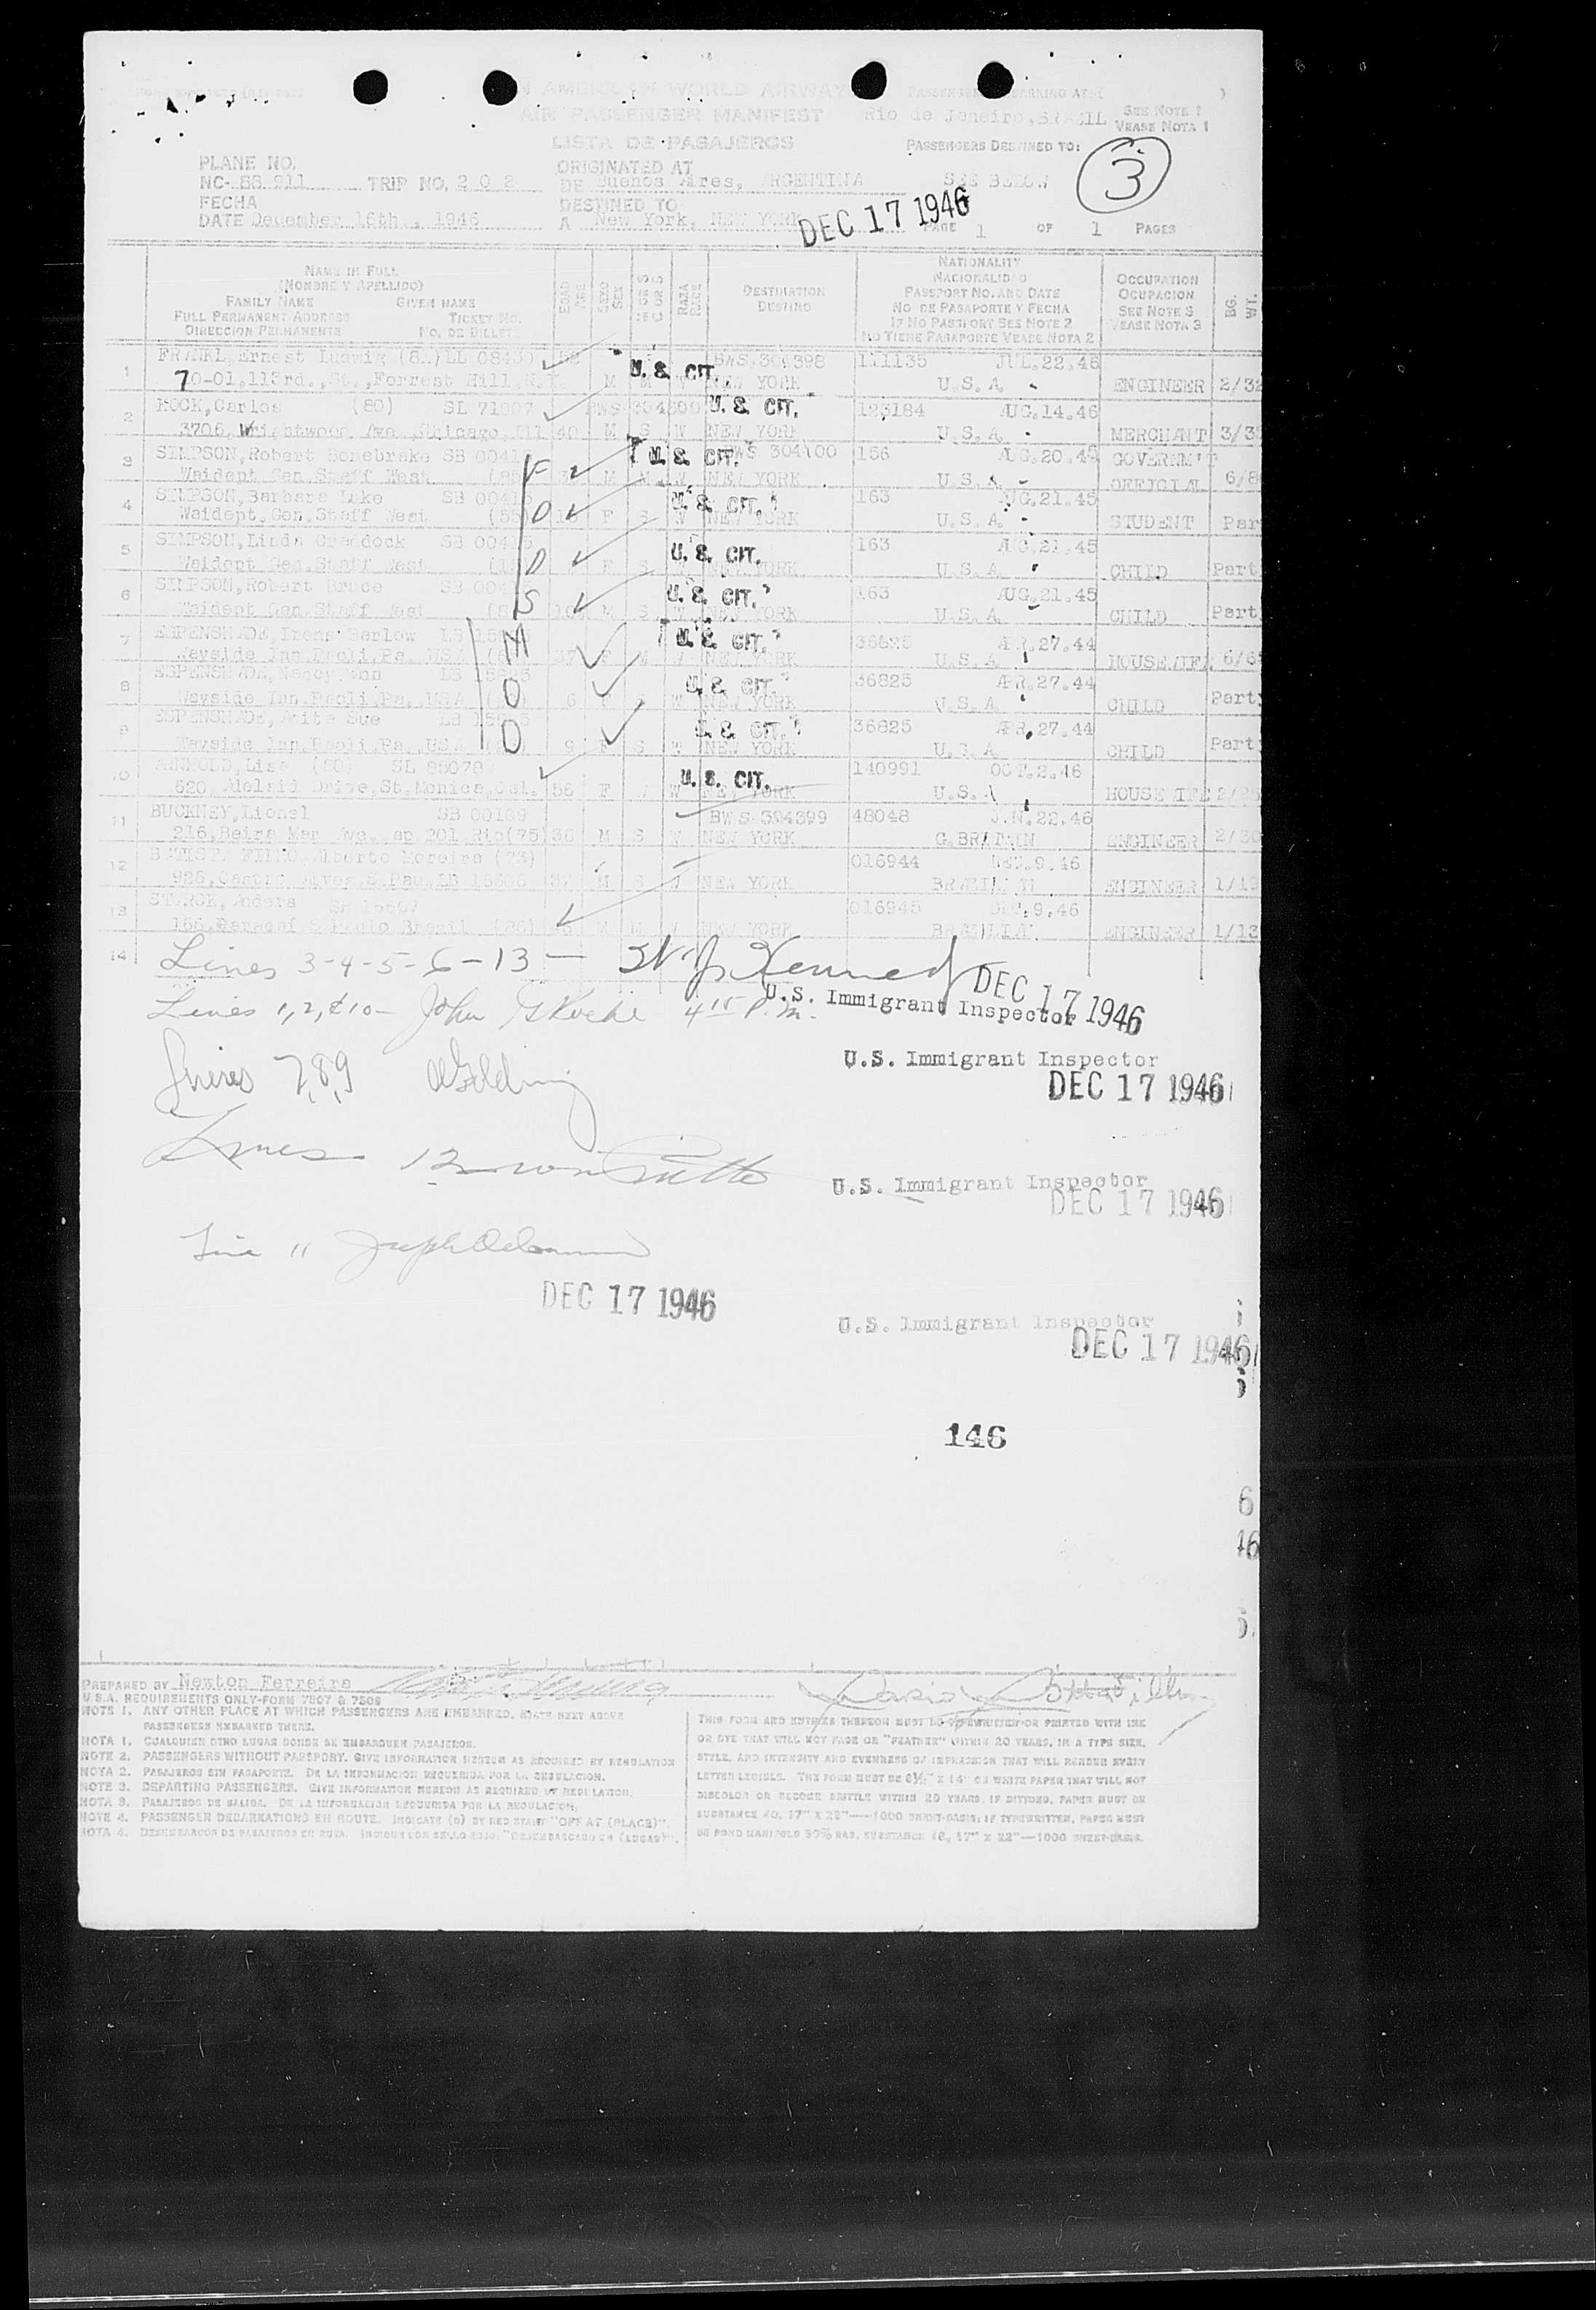 AMERICAN WORLD AIRWAY
AIR PASSENGER MANIFEST
LISTA DE PASAJEROS
Rio de Janeiro, BRASIL
SEE NOTE 1
VEASE NOTA 1
PASSENGERS DESTINED TO:
SEE BELOW
3
PLANE NO.
NC- 88 911 TRIP NO. 2 0 2
ORIGINATED AT
DE Buenos Aires, ARGENTINA
FECHA
DATE December 16th., 1946
DESTINED TO
A New York, NEW YORK
DEC 17 1946
PAGE 1 OF 1 PAGES
NAME IN FULL
(NOMBRE Y APELLIDO)
FAMILY NAME GIVEN NAME
FULL PERMANENT ADDRESS TICKET NO.
DIRECCION PERMANENTE NO. DE BILLET
EDAD AGE
SEXO SEX
RAZA RACE
DESTINATION
DESTINO
NATIONALITY
NACIONALIDAD
PASSPORT NO. AND DATE
NO DE PASAPORTE Y FECHA
IF NO PASSPORT SEE NOTE 2
NO TIENE PASAPORTE VEASE NOTA 2
OCCUPATION
OCUPACION
SEE NOTE 3
VEASE NOTA 3
BG. WT.
1 FRANKL, Ernest Ludwig BWS 304398 111135 JUL.22.46
70-01, 113rd., St., Forrest Hill, N.Y. M M W NEW YORK U.S.A. ENGINEER 2/32
U. S. CIT.
2 ROCK, Carlos (80) SL 71007 U. S. CIT. 123184 AUG.14.46
3706, Wrightwood Ave., Chicago, Ill 40 M S W NEW YORK U.S.A. MERCHANT 3/3
3 SIMPSON, Robert Bonebrake SB 0041 F U. S. CIT. BWS 304400 156 AUG.20.46 GOVERNM'T
Waidept Gen Staff West M M W NEW YORK U.S.A. OFFICIAL 6/8
4 SIMPSON, Barbara Luke SB 0041 D U. S. CIT. 163 AUG.21.45
Waidept, Gen, Staff West F S W NEW YORK U.S.A. STUDENT Par
5 SIMPSON, Linda Craddock SB 0041 D U. S. CIT. 163 AUG.21.45
Waidept Gen Staff West F S W NEW YORK U.S.A. CHILD Part
6 SIMPSON, Robert Bruce SB 004 S U. S. CIT. 163 AUG.21.45
Waidept Gen Staff West 10 M S W NEW YORK U.S.A. CHILD Part
7 ESPENSHADE, Irene Barlow LB M U. S. CIT. 36825 APR.27.44
Wayside Inn, Paoli, Pa. USA 37 F M W NEW YORK U.S.A. HOUSEWIFE 6/6
8 ESPENSHADE, Nancy Ann LB D U. S. CIT. 36825 APR.27.44
Wayside Inn, Paoli, Pa. USA 6 F S W NEW YORK U.S.A. CHILD Party
9 ESPENSHADE, Anita Sue LB D U. S. CIT. 36825 APR.27.44
Wayside Inn, Paoli, Pa. USA 9 F S W NEW YORK U.S.A. CHILD Party
10 ARNHOLD, Lisa (80) SL 85078 U. S. CIT. 140991 OCT.2.46
620, Adelaid Drive, St. Monica, Cal. 56 F W NEW YORK U.S.A. HOUSEWIFE
11 BUCKNEY, Lionel SB 00109 BWS 304399 48048 JAN.22.46
216, Beira Mar Ave. ap 201 Rio(75) 36 M S W NEW YORK G.BRITAIN ENGINEER 2/30
12 BATISTA FILHO, Alberto Moreira (73) 016944 DEC.9.46
926, Castro Alves, S.Pau, LB 37 M S W NEW YORK BRAZILIAN ENGINEER 1/19
13 STARCK, Anders 016945 DEC.9.46
S Paulo Brazil M M W NEW YORK BRAZILIAN ENGINEER 1/13
14
Lines 3-4-5-6-13 — Kennedy DEC 17 1946
U.S. Immigrant Inspector
Lines 1, 2, & 10 - John G Roche 4 15 P.m.
U.S. Immigrant Inspector
Lines 7, 8, 9
DEC 17 1946
Lines 12
U.S. Immigrant Inspector
DEC 17 1946
Line 11 Joseph
DEC 17 1946
U.S. Immigrant Inspector
DEC 17 1946
146
PREPARED BY Newton Ferreira
U.S.A. REQUIREMENTS ONLY-FORM 7507 & 7509
NOTE 1. ANY OTHER PLACE AT WHICH PASSENGERS ARE EMBARKED, STATE NEXT ABOVE
PASSENGERS EMBARKED THERE.
NOTA 1. CUALQUIER OTRO LUGAR DONDE SE EMBARQUEN PASAJEROS.
NOTE 2. PASSENGERS WITHOUT PASSPORT. GIVE INFORMATION HEREON AS REQUIRED BY REGULATION
NOTA 2. PASAJEROS SIN PASAPORTE. DE LA INFORMACION REQUERIDA POR LA REGULACION.
NOTE 3. DEPARTING PASSENGERS. GIVE INFORMATION HEREON AS REQUIRED BY REGULATION.
NOTA 3. PASAJEROS DE SALIDA. DE LA INFORMACION REQUERIDA POR LA REGULACION.
NOTE 4. PASSENGER DEBARKATIONS EN ROUTE. INDICATE (D) BY RED STAMP "OFF AT (PLACE)".
NOTA 4. DESEMBARCOS DE PASAJEROS EN RUTA. INDIQUE CON SELLO ROJO: "DESEMBARCADO EN (LUGAR)".
THIS FORM AND ENTRIES THEREON MUST BE TYPEWRITTEN OR PRINTED WITH INK
OR DYE THAT WILL NOT FADE OR "FEATHER" WITHIN 20 YEARS, IN A TYPE SIZE,
STYLE, AND INTENSITY AND EVENNESS OF IMPRESSION THAT WILL RENDER EVERY
LETTER LEGIBLE. THE FORM MUST BE 8½" X 14" ON WHITE PAPER THAT WILL NOT
DISCOLOR OR BECOME BRITTLE WITHIN 20 YEARS. IF DITTOED, PAPER MUST BE
SUBSTANCE 40, 17" X 22"—1000 SHEET-BASIS; IF TYPEWRITTEN, PAPER MUST
BE BOND MANIFOLD 50% RAG, SUBSTANCE 16, 17" X 22"—1000 SHEET-BASIS.